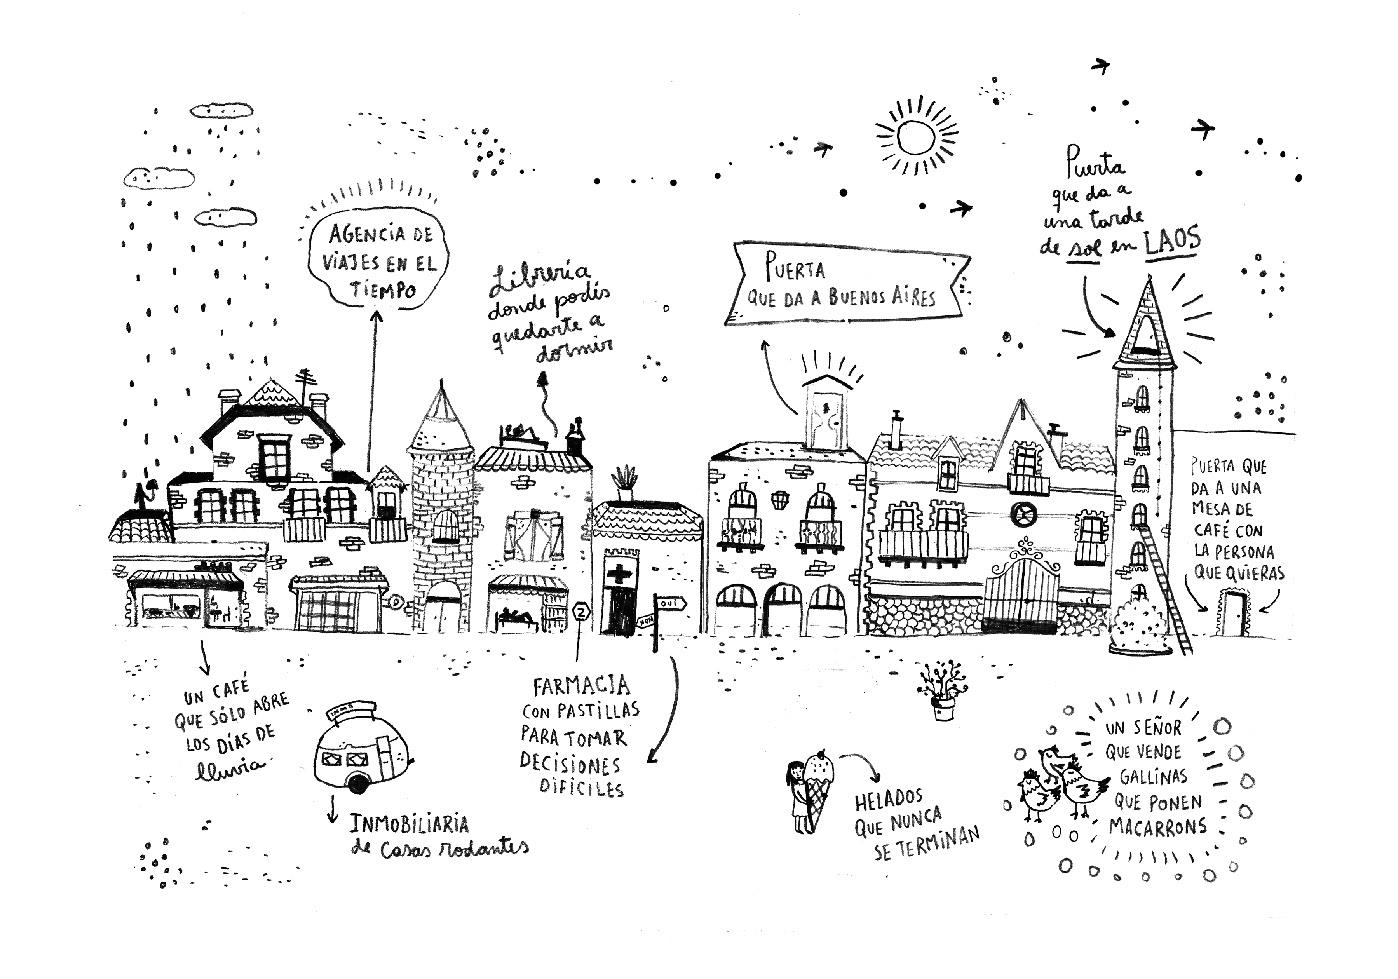 AGENCIA DE
VIAJES EN EL
TIEMPO
Librería
donde podís
quedarte a
dormir
PUERTA
QUE DA A BUENOS AIRES
Puerta
que da a
una tarde
de sol en LAOS
PUERTA QUE
DA A UNA
MESA DE
CAFÉ CON
LA PERSONA
QUE QUIERAS
2
OUI
NON
UN CAFÉ
QUE SÓLO ABRE
LOS DÍAS DE
lluvia
INMOBILIARIA
de casas rodantes
FARMACIA
CON PASTILLAS
PARA TOMAR
DECISIONES
DIFÍCILES
HELADOS
QUE NUNCA
SE TERMINAN
UN SEÑOR
QUE VENDE
GALLINAS
QUE PONEN
MACARRONS